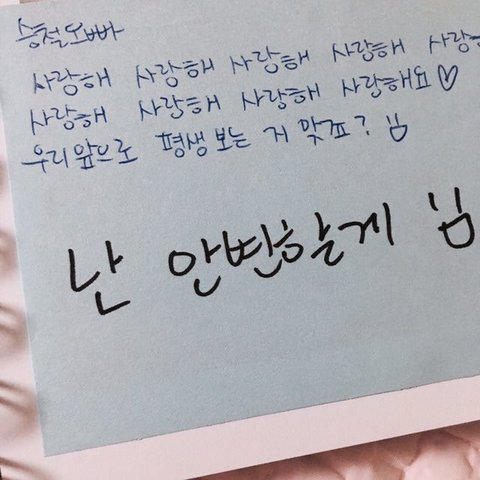 승철오빠
사랑해 사랑해 사랑해 사랑해 사랑해
사랑해 사랑해 사랑해 사랑해요♡
우리 앞으로 평생 보는 거 맞죠?
난 안변할게